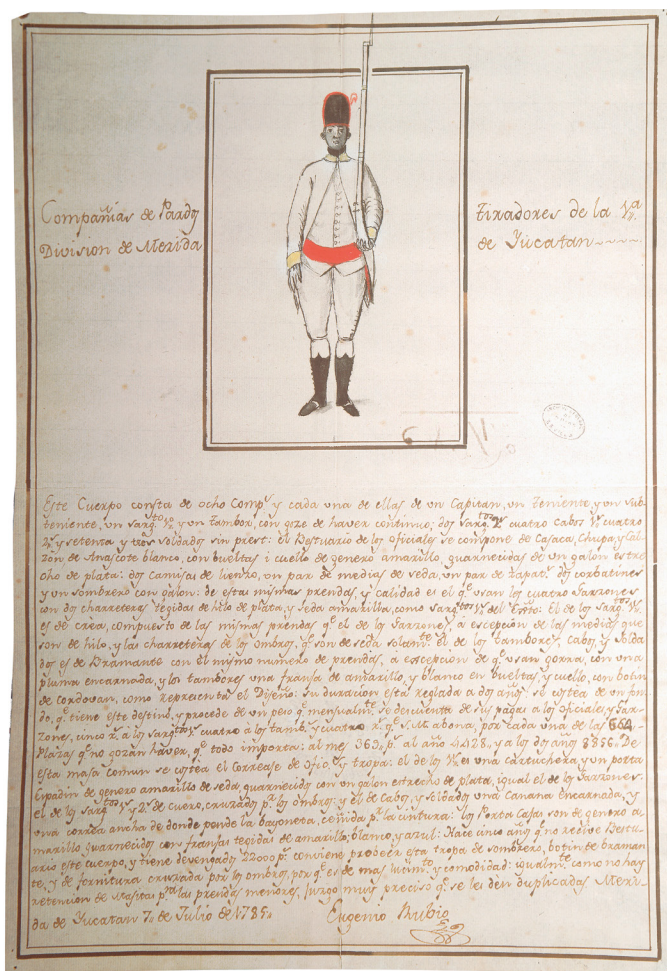 Compañias de Pardos
Division de Merida
Tiradores de la 1/a
de Yucatan
Este Cuerpo consta de ocho Comps y cada una de ellas de un Capitan, un Teniente y un sub-
teniente, un sargto 1o y un tambor, con goze de haver continuo; dos sargtos 2s cuatro Cabos 1s cuatro
2s y setenta y tres soldados sin prest: el Bestuario de los oficiales se compone de Casaca, Chupa y Cal-
zon de Anascote blanco, con bueltas i cuello de genero amarillo, guarnecidas de un galon estre
cho de plata: dos camisas de lienzo, un par de medias de seda, un par de zapats dos corbatines
y un sombrero con galon: de estas mismas prendas, y calidad es el qe usan los cuatro Garzones
con dos charreteras tegidas de hilo de plata, y seda amarilla, como sargtos 1s del Exto: el de los sargtos 1s
es de crèa, compuesto de las mismas prendas qe el de los Garzones, a escepcion de las medias que
son de hilo, y las charreteras de los ombros, qe son de seda solamte el de los tambores, Cabos, y Solda
dos es de Bramante con el mismo numero de prendas, a escepcion de qe usan gorra, con una
pluma encarnada, y los tambores una franja de amarillo, y blanco en bueltas, y cuello, con botin
de Cordovan, como representa el Diseño: su duracion esta reglada a dos años: se costea de un fon-
do, qe tiene este destino, y procede de un peso qe mensualmte se descuenta de sus pagas a los oficiales, y Gar-
zones, cinco rs a los sargtos 1s cuatro a los tambs y cuatro rs qe S.M. abona, por cada una de las 664
Plazas qe no gozan haver, qe todo importa: al mes 369 ps al año 4428, y a los dos años 8856. De
esta masa comun se costea el Correage de oficiales y tropa: el de los 1s es una cartuchera y un porta
Espadin de genero amarillo de seda, guarnecido con un galon estrecho de plata, igual el de los Garzones:
el de los sargtos 1s y 2s de cuero, cruzado pr los ombros: y el de Cabos, y soldados una Canana Encarnada, y
una correa ancha de donde pende la bayoneta, ceñida pr la cintura: los Porta Cajas son de genero a
marillo guarnecido con franjas tegidas de amarillo, blanco, y azul: Hace cinco años qe no recive Bestu-
ario este cuerpo, y tiene devengados 22000 ps conviene probeer esta tropa de sombrero, botin de braman
te, y de fornitura cruzada por los ombros, por qe es de mas lucimto y comodidad: igualmte como no hay
retencion de Masitas pa las prendas menores, juzgo muy preciso qe se les dèn duplicadas Meri-
da de Yucatan 7 de Julio de 1785
Eugenio Rubio